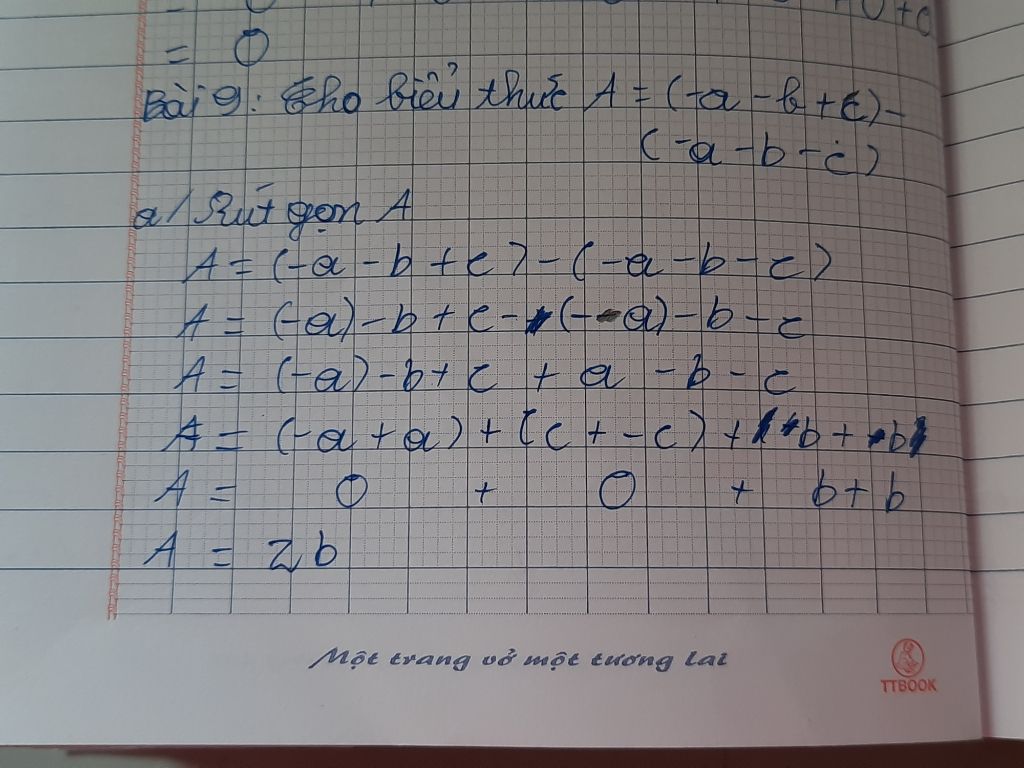 + 0 + 0
= 0
Bài 9: Cho biểu thức A = (-a - b + c) -
(-a - b - c)
a/ Rút gọn A
A = (-a - b + c) - (-a - b - c)
A = (-a) - b + c - (-a) - b - c
A = (-a) - b + c + a - b - c
A = (-a + a) + (c + -c) + b + b
A = 0 + 0 + b + b
A = 2b
Một trang vở một tương lai
TTBOOK